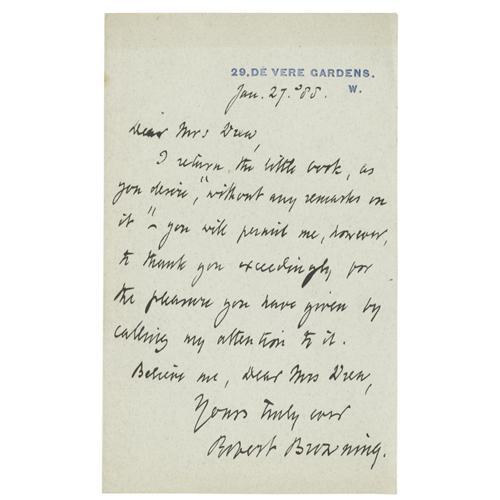 29, DE VERE GARDENS.
W.
Jan. 27. '88.
Dear Mrs Drew,
I return the little book, as
you desire, "without any remarks on
it" - you will permit me, however,
to thank you exceedingly for
the pleasure you have given by
calling my attention to it.
Believe me, Dear Mrs Drew,
Yours truly ever
Robert Browning.